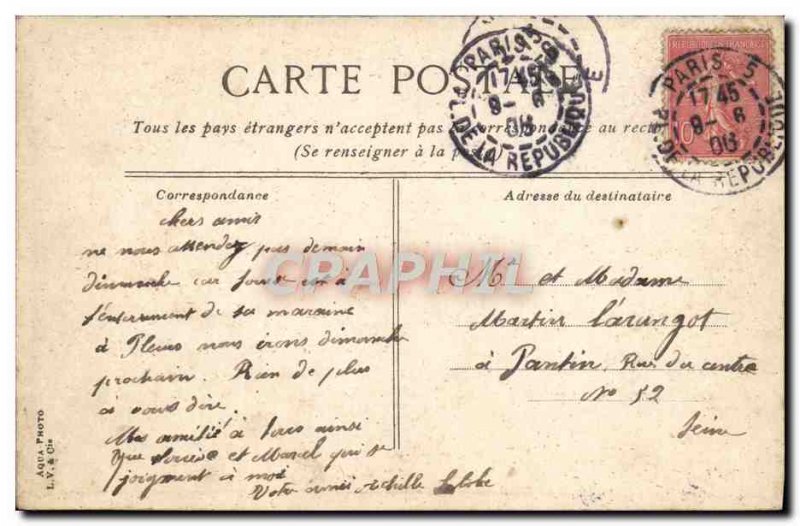 CARTE POSTALE
Tous les pays étrangers n'acceptent pas la correspondance au recto
(Se renseigner à la poste)
Correspondance
Adresse du destinataire
chers amis
ne nous attendez pas demain
dimanche car est à
l'enterrement de sa maraine
à nous irons dimanche
prochain. Rien de plus
à vous dire.
Mes amitié à tous ainsi
que et Marcel qui se
joignent à moi
Votre ami Achille
Mr et Madame
Martin
à Pantin, Rue du centre
No 52
Seine
CPRPHIL
PARIS 5
17 45
9 - 6
06
PL. DE LA REPUBLIQUE
PARIS 5
17 45
9 - 6
06
PL. DE LA REPUBLIQUE
REPUBLIQUE FRANCAISE
10
AQUA PHOTO
L. V. & Cie